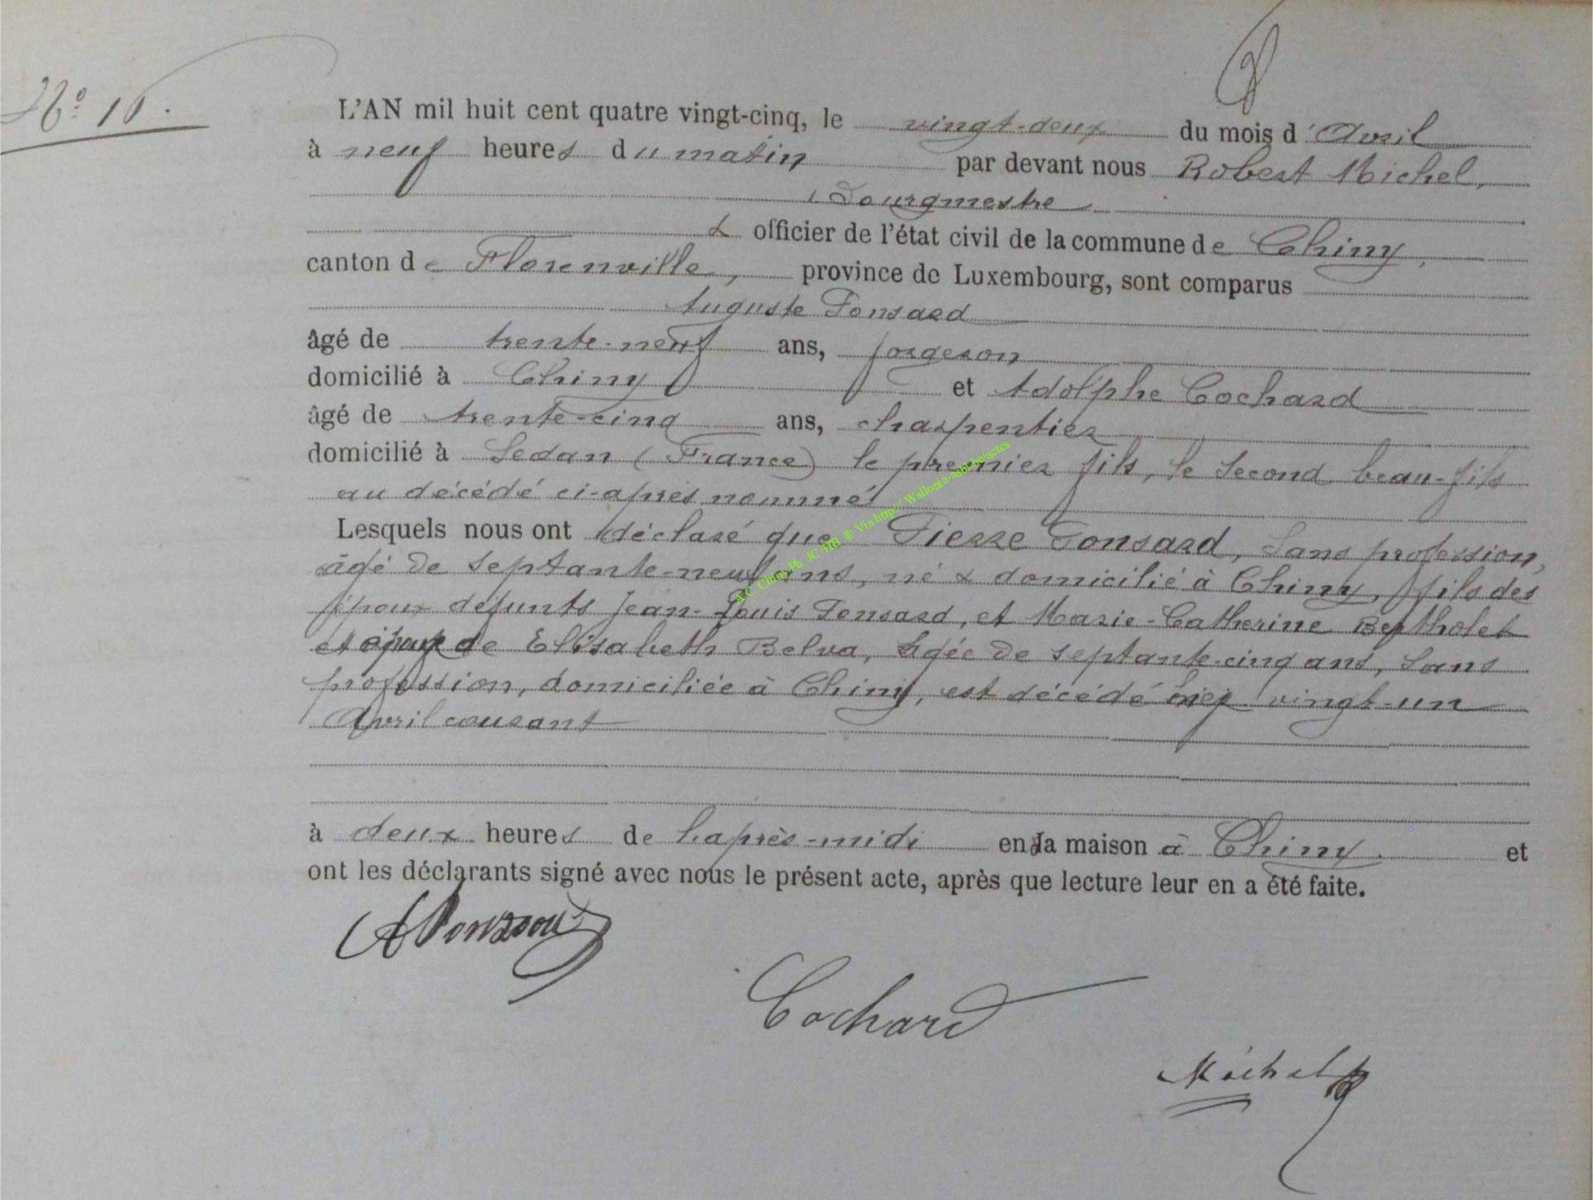 N.º 16.
L'AN mil huit cent quatre vingt-cinq, le vingt-deux du mois d'Avril
à neuf heures du matin par devant nous Robert Michel,
Bourgmestre
& officier de l'état civil de la commune de Chiny,
canton de Florenville, province de Luxembourg, sont comparus
Auguste Ponsard
âgé de trente-neuf ans, forgeron
domicilié à Chiny et Adolphe Cochard
âgé de trente-cinq ans, charpentier
domicilié à Sedan (France) le premier fils, le second beau-fils
au décédé ci-après nommé
Lesquels nous ont déclaré que Pierre Ponsard, sans profession,
âgé de septante-neuf ans, né & domicilié à Chiny, fils des
époux défunts Jean-Louis Ponsard, et Marie-Catherine Bertholet
et époux de Elisabeth Belva, âgée de septante-cinq ans, sans
profession, domiciliée à Chiny, est décédé hier vingt-un
Avril courant
à deux heures de l'après-midi en la maison à Chiny. et
ont les déclarants signé avec nous le présent acte, après que lecture leur en a été faite.
A Ponsard
Cochard
Michel